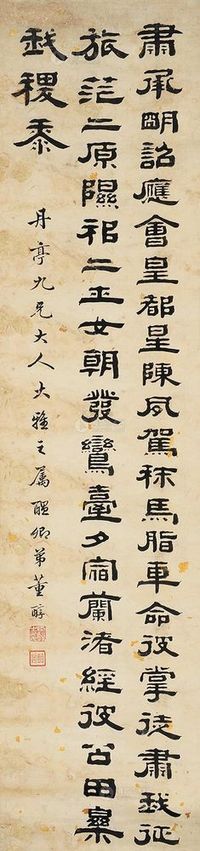 肅承明詔應會皇都星陳夙駕秣馬脂車命彼掌徒肅我征
旅茫二原隰祁二士女朝發鸞臺夕宿蘭渚經彼公田樂
我稷黍
丹亭九兄大人大雅之屬醖卿弟董醇